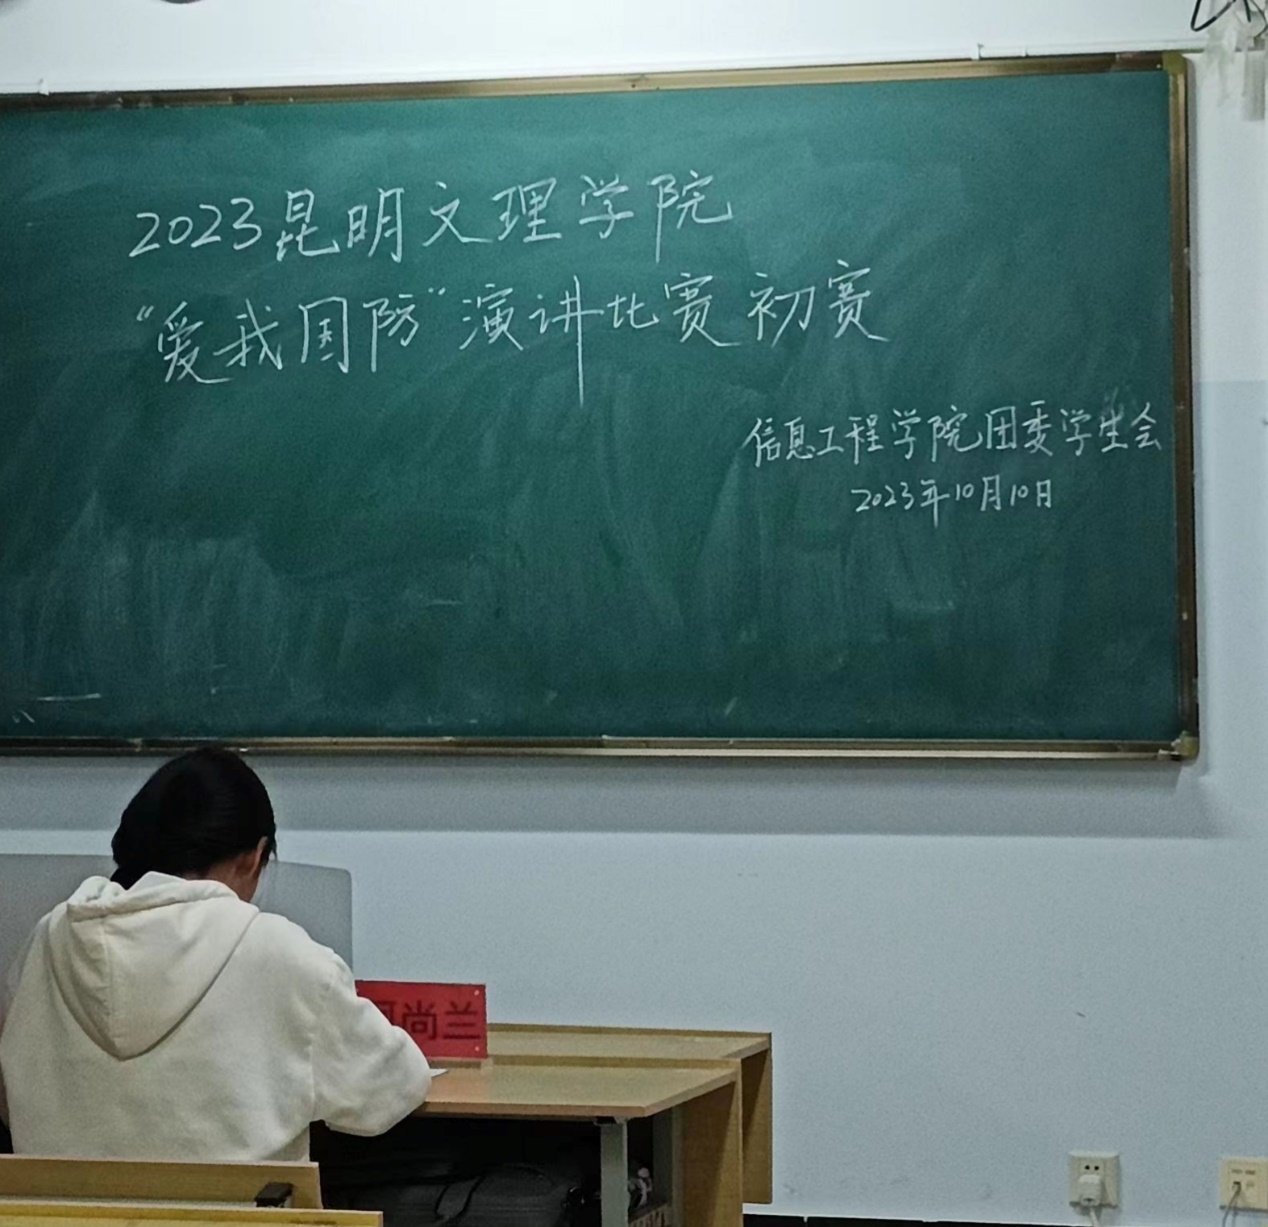 2023昆明文理学院
“爱我国防”演讲比赛初赛
信息工程学院团委学生会
2023年10月10日
尚兰